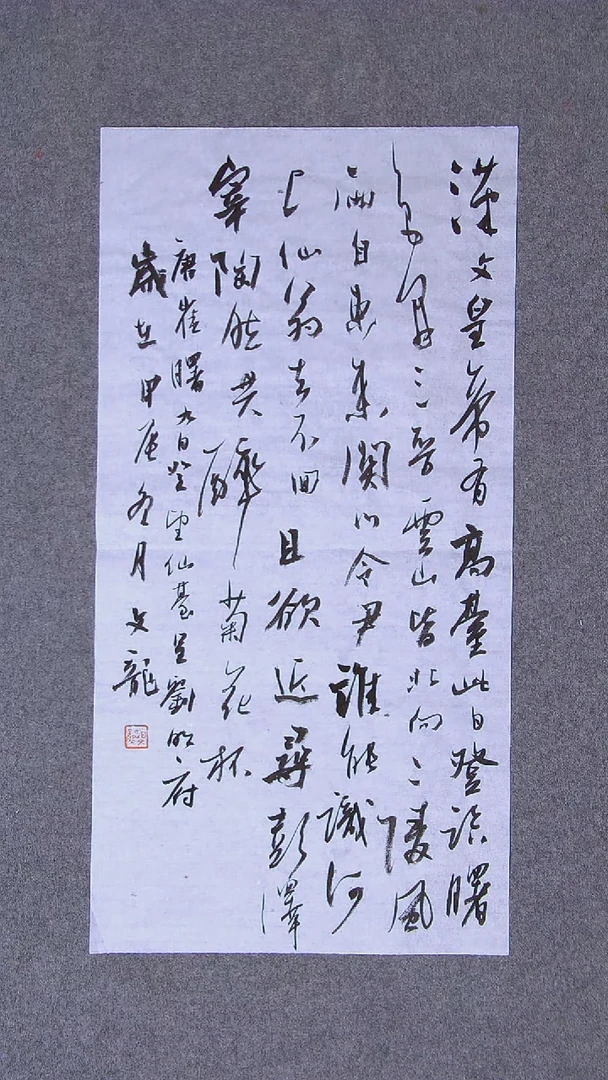 漢文皇帝有高臺此日登臨曙
色開三晉雲山皆北向二陵風
雨自東來關門令尹誰能識河
上仙翁去不回且欲近尋彭澤
宰陶然共醉菊花杯
唐崔曙九日登望仙臺呈劉明府
歲在甲辰冬月文龍